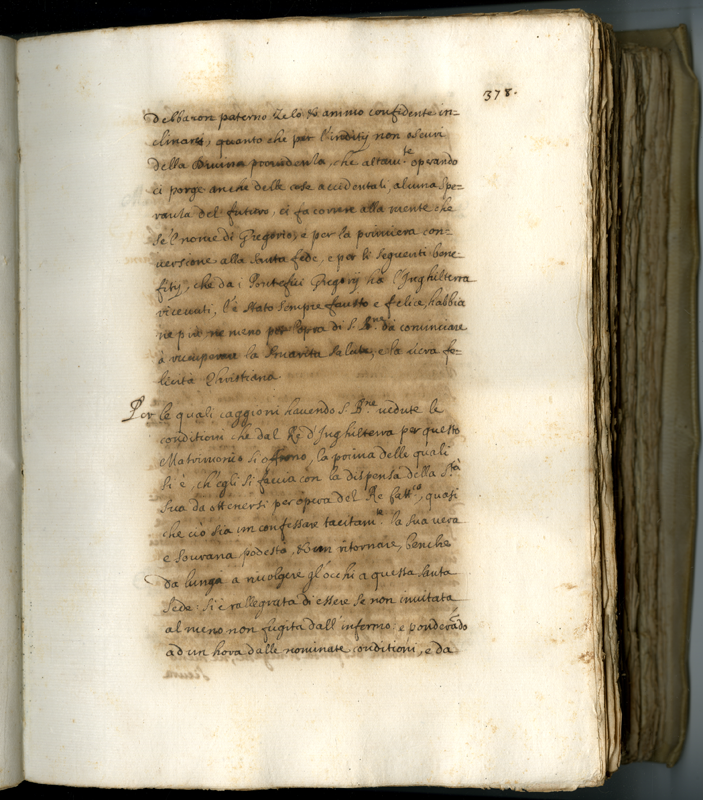 378.
debbaron paterno Zelo et animo confidente in-
clinare, quanto che per l'indity non oscuri
della Divina providenza, che altam.te operando
ci porge anche delle cose accidentali, alcuna spe-
ranza del futuro, ci fa correre alla mente che
se'l nome di Gregorio, e per la primiera con-
versione alla Santa fede, e per li seguenti bene-
fity, che da i Pontefici Gregorij ha l'Inghilterra
ricevuti, l'è stato sempre fausto e felice, habbia
ne più ne meno per opra di S. B.ne da cominciare
à ricuperare la smarita salute, e la vera fe-
licità Christiana
Per le quali caggioni havendo S. B.ne vedute le
conditioni che dal Re d'Inghilterra per questo
Matrimonio si offrono, la prima delle quali
si è, ch'egli si faccia con la dispensa della S.tà
Sua da ottenersi per opera del Re Catt.co, quasi
che ciò sia un confessare tacitam.te la sua vera
e sovrana podestà, et un ritornare, benche
da lunga a rivolgere gl'occhi a questa santa
Sede: si è rallegrata di essere se non invitata
al meno non fugita dall'infermo: e ponderādo
ad un hora dalle nominate conditioni, e da